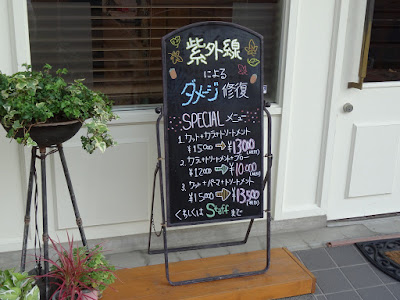 紫外線
による
ダメージ修復
SPECIAL メニュー
1. カット+カラー+トリートメント
¥15000 ⇒ ¥13000
2. カラー+トリートメント+ブロー
¥12000 ⇒ ¥10.000
3. カット+パーマ+トリートメント
¥15000 ⇒ ¥13500
くわしくは Staff まで